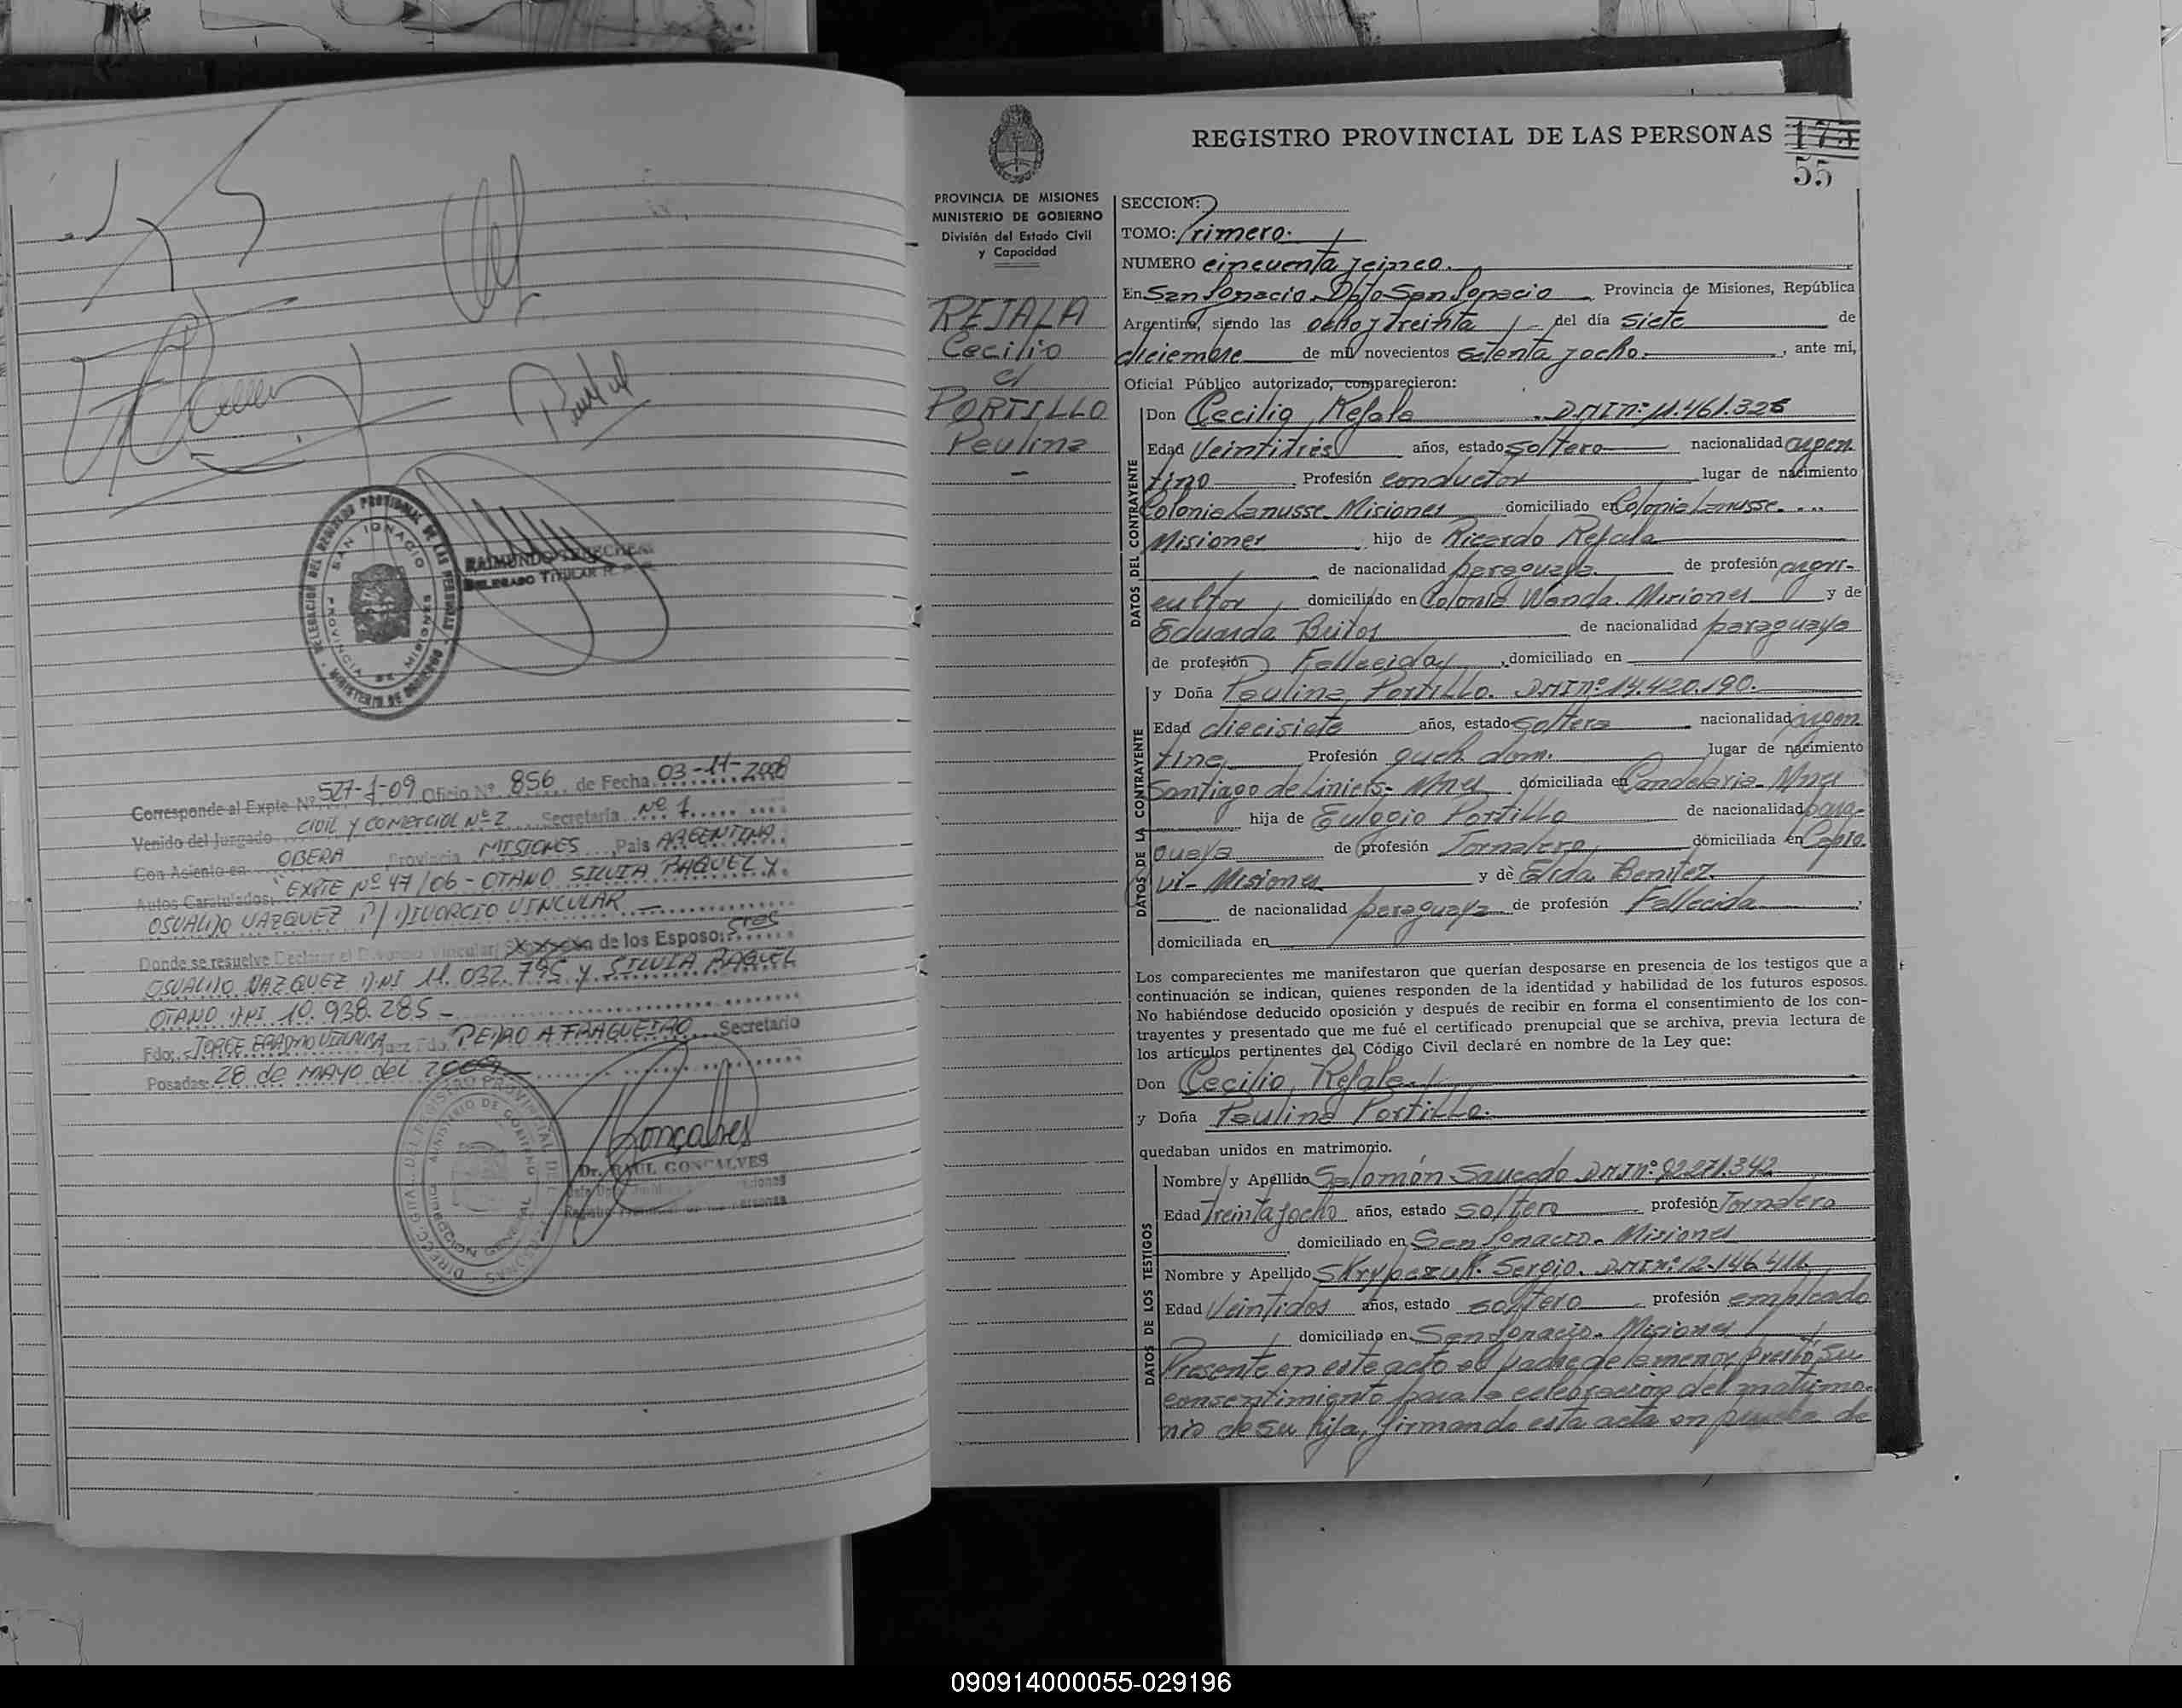 DELEGACION DEL REGISTRO PROVINCIAL DE LAS PERSONAS
SAN IGNACIO
PROVINCIA DE MISIONES
MINISTERIO DE GOBIERNO
RAIMUNDO
DELEGADO TITULAR
Corresponde al Expte Nº 527-1-09 Oficio Nº 856 de Fecha 03-11-2008
Venido del Juzgado CIVIL Y COMERCIAL Nº 2 Secretaría Nº 1
Con Asiento en OBERA Provincia MISIONES Pais ARGENTINA
Autos Caratulados: "EXPTE Nº 47/06 - OTANO SILVIA RAQUEL Y
OSVALDO VAZQUEZ P/ DIVORCIO VINCULAR
Donde se resuelve Declarar el Divorcio Vincular/ de los Esposo: Sres
OSVALDO VAZQUEZ DNI 11.032.795 Y SILVIA RAQUEL
OTANO DNI 10.938.285 -
Fdo: JORGE ERASMO VILLALBA Juez Fdo. PEDRO A FRAGUEIRO Secretario
Posadas: 28 de MAYO del 2009
Gonçalves
Dr. RAUL GONCALVES
REGISTRO PROVINCIAL DE LAS PERSONAS 175
55
PROVINCIA DE MISIONES
MINISTERIO DE GOBIERNO
División del Estado Civil
y Capacidad
REJALA
Cecilio
c/
PORTILLO
Paulina
-
SECCION:
TOMO: Primero.
NUMERO cincuenta y cinco.
En San Ignacio. Dpto San Ignacio Provincia de Misiones, República
Argentina, siendo las ocho y treinta del día siete de
diciembre de mil novecientos setenta y ocho. , ante mi,
Oficial Público autorizado, comparecieron:
DATOS DEL CONTRAYENTE
Don Cecilio Rejala D.N.I nº 11.461.326
Edad Veintitrés años, estado soltero nacionalidad argen-
tino Profesión conductor lugar de nacimiento
Colonia Lanusse. Misiones domiciliado en Colonia Lanusse.
Misiones hijo de Ricardo Rejala
de nacionalidad paraguaya de profesión agri-
cultor domiciliado en Colonia Wanda. Misiones y de
Eduarda Britos de nacionalidad paraguaya
de profesión Fallecida , domiciliado en
DATOS DE LA CONTRAYENTE
y Doña Paulina Portillo. D.N.I nº 14.420.190.
Edad diecisiete años, estado soltera nacionalidad argen
tina Profesión queh. dom. lugar de nacimiento
Santiago de Liniers- Mnes domiciliada en Candelaria- Mnes
hija de Eulogio Portillo de nacionalidad para-
guaya de profesión Jornalero domiciliada en Capio-
vi- Misiones y de Elida Benitez.
de nacionalidad paraguaya de profesión Fallecida ,
domiciliada en
Los comparecientes me manifestaron que querían desposarse en presencia de los testigos que a
continuación se indican, quienes responden de la identidad y habilidad de los futuros esposos.
No habiéndose deducido oposición y después de recibir en forma el consentimiento de los con-
trayentes y presentado que me fué el certificado prenupcial que se archiva, previa lectura de
los artículos pertinentes del Código Civil declaré en nombre de la Ley que:
Don Cecilio Rejala
y Doña Paulina Portillo.
quedaban unidos en matrimonio.
DATOS DE LOS TESTIGOS
Nombre y Apellido Salomón Saucedo D.N.I nº 92.271.342
Edad Treinta y ocho años, estado soltero profesión Jornalero
domiciliado en San Ignacio. Misiones
Nombre y Apellido Skrypczuk. Sergio. D.N.I nº 12.146.411.
Edad Veintidos años, estado soltero profesión empleado
domiciliado en San Ignacio. Misiones
Presente en este acto el padre de la menor, prestó su
consentimiento para la celebración del matrimo-
nio de su hija, firmando esta acta en prueba de
090914000055-029196